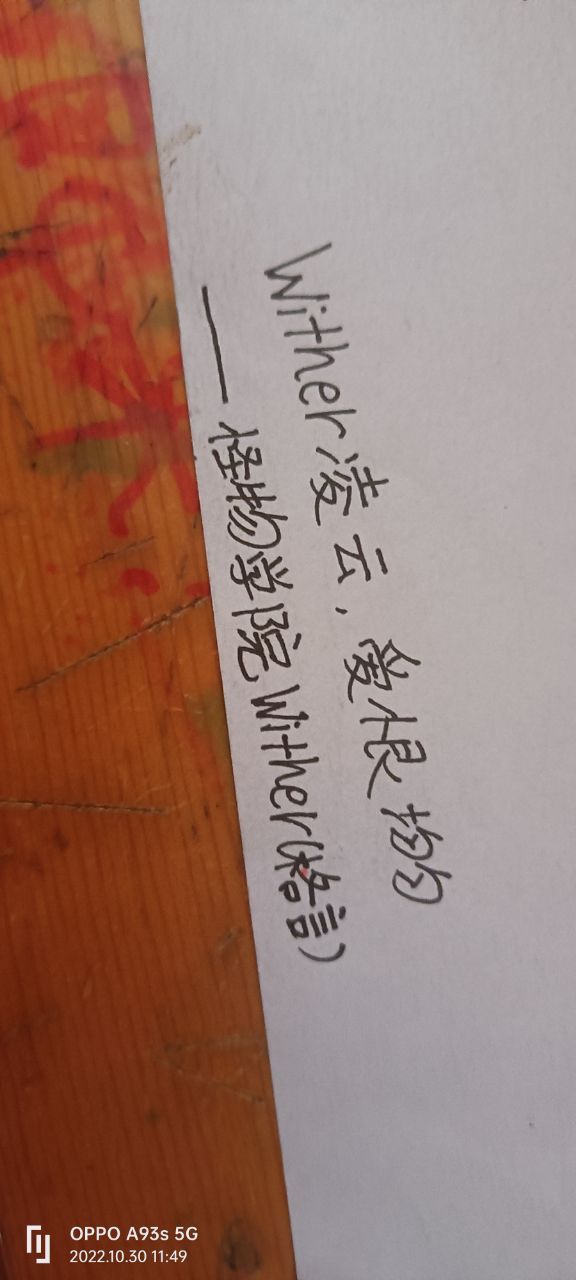 Wither凌云，爱恨均匀
——怪物学院Wither(格言)
OPPO A93s 5G
2022.10.30 11:49